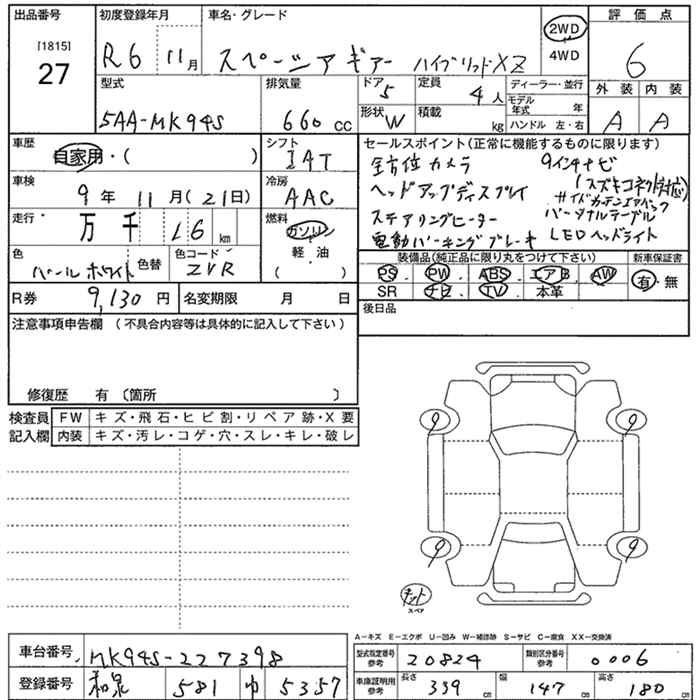 出品番号 初度登録年月 車名・グレード 評価点
[1815]
27
R6 11月 スペーシアギアー ハイブリッドXZ 2WD 4WD 6
型式 排気量 ドア 5 定員 4人 ディーラー・並行 外装 内装
5AA-MK94S 660cc 形状 W 積載 kg モデル年式 年 ハンドル 左・右 A A
車歴 自家用・( ) シフト IAT セールスポイント(正常に機能するものに限ります)
全方位カメラ 9インチナビ
車検 9年 11月(21日) 冷房 AAC ヘッドアップディスプレイ (スズキコネクト対応)
サイドカーテンエアバック
走行 万 千 16 km 燃料 ガソリン 軽・油 ( ) ステアリングヒーター パーソナルテーブル
電動パーキングブレーキ LEDヘッドライト
色 パールホワイト 色替 色コード ZVR 装備品(純正品に限り丸をつけて下さい) 新車保証書
PS PW ABS エアB AW 有・無
R券 9,130円 名変期限 月 日 SR ナビ TV 本革
注意事項申告欄 (不具合内容等は具体的に記入して下さい) 後日品
修復歴 有 〔箇所 〕
検査員記入欄 FW キズ・飛石・ヒビ割・リペア跡・X要
内装 キズ・汚レ・コゲ・穴・スレ・キレ・破レ
9 9
9 9
キット
スペア
A-キズ E-エクボ U-凹み W-補修跡 S-サビ C-腐食 XX-交換済
車台番号 MK94S-227398 型式指定番号 参考 20824 類別区分番号 参考 0006
登録番号 和泉 581 ゆ 5357 車庫証明用 参考 長さ 339cm 幅 147cm 高さ 180cm